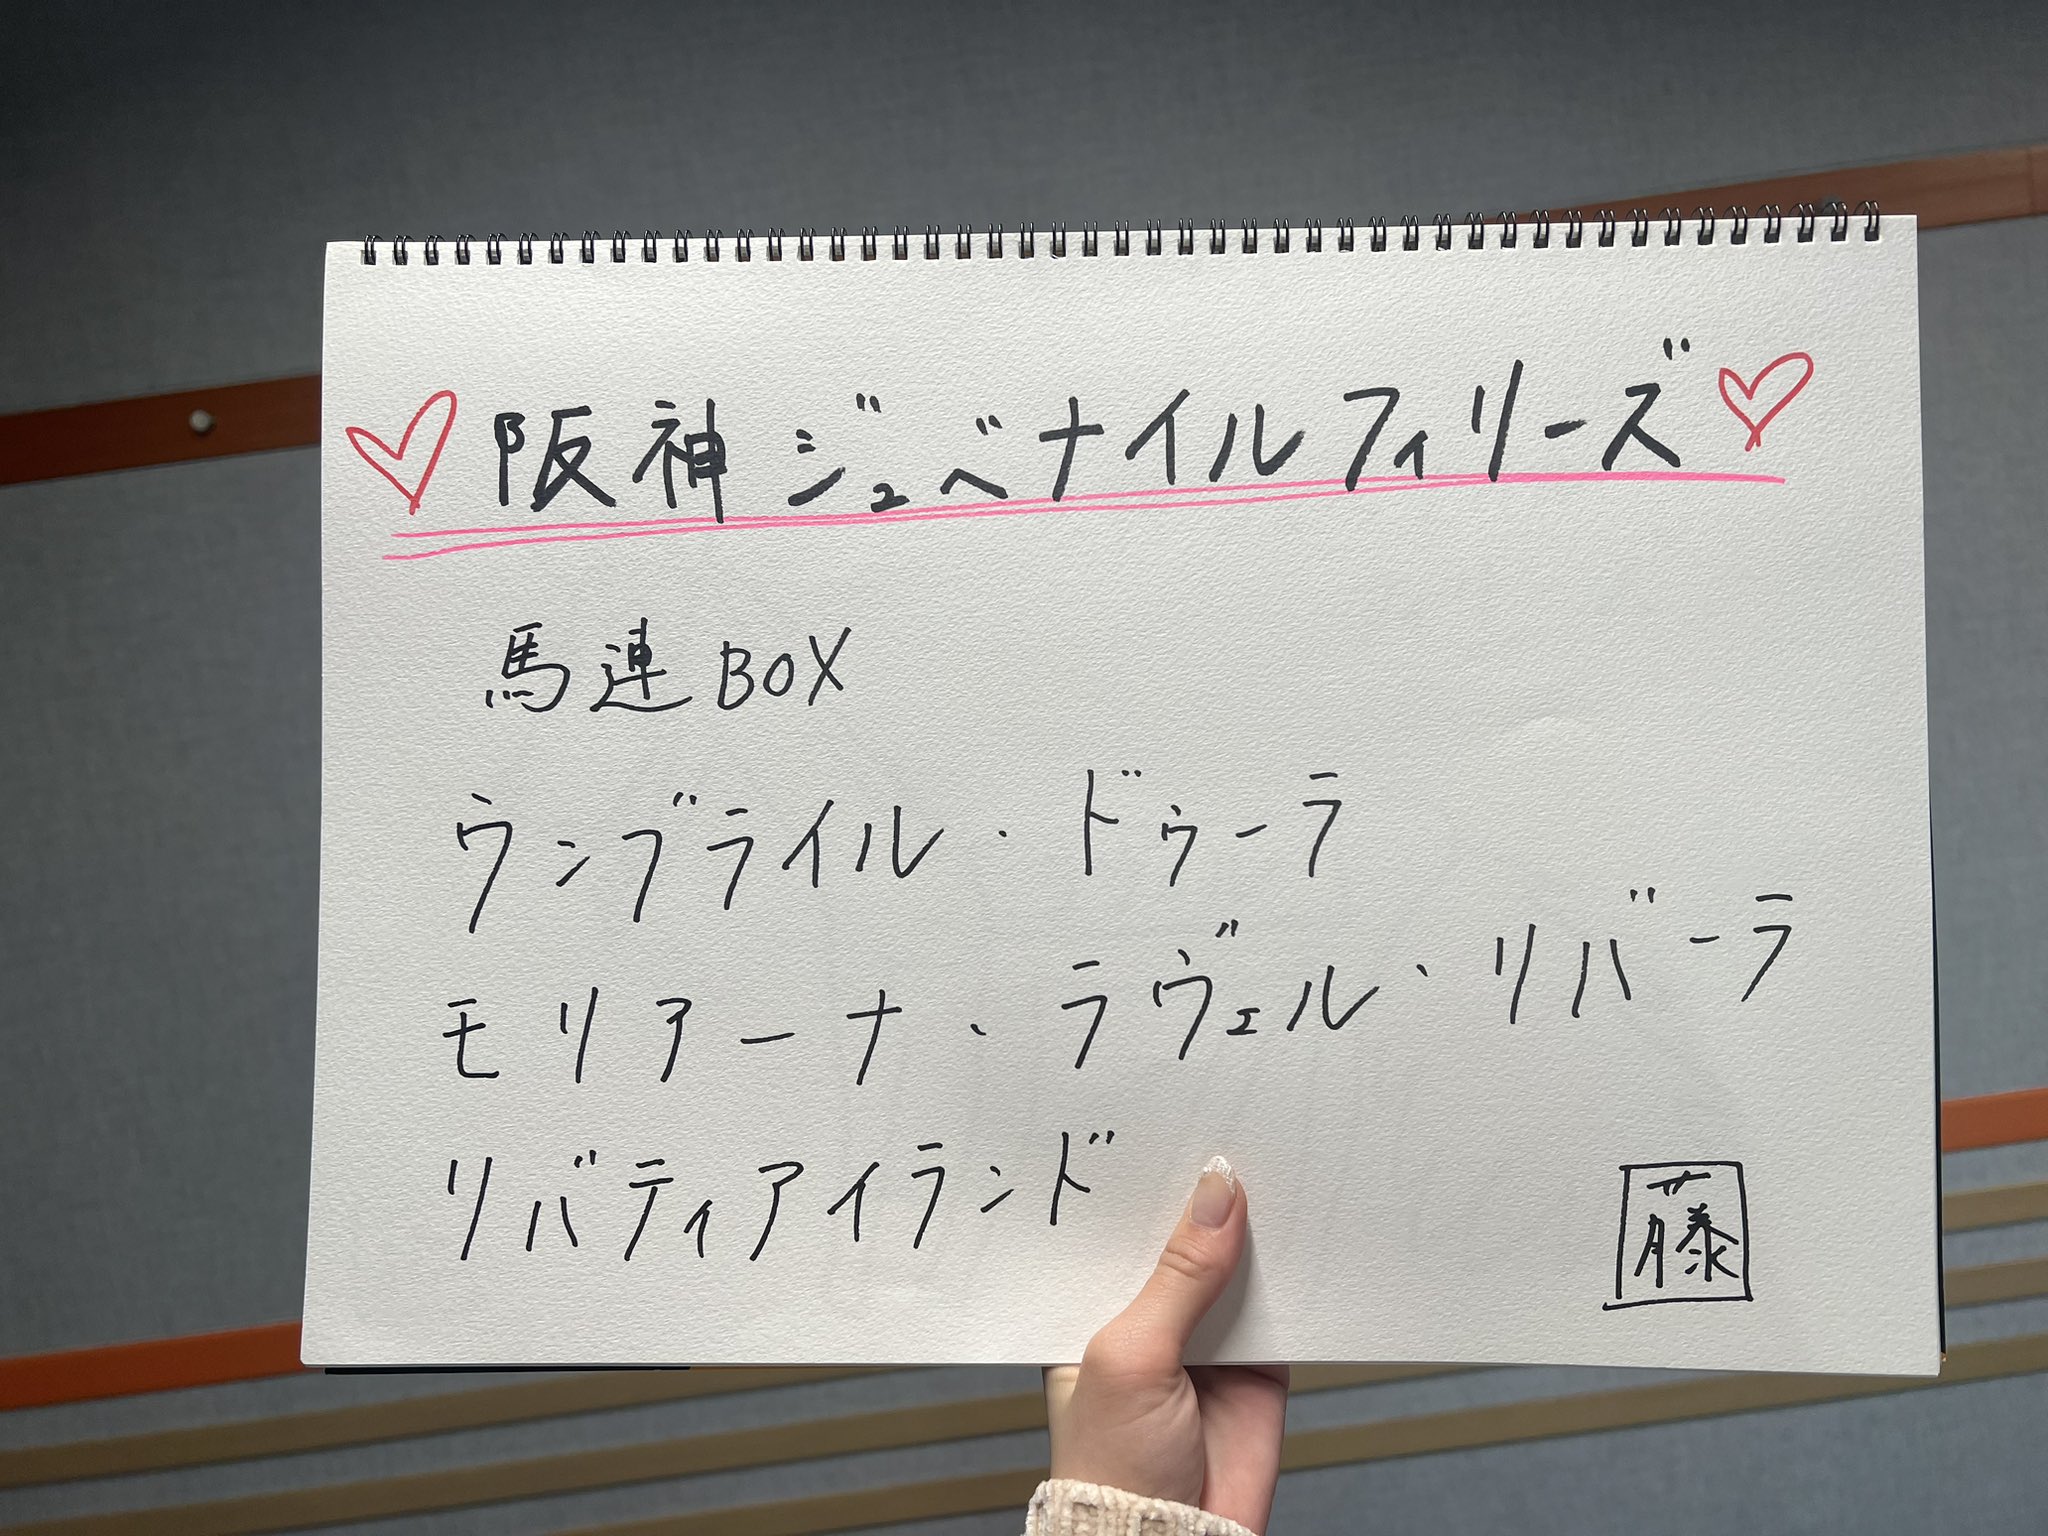 阪神ジュベナイルフィリーズ
馬連BOX
ウンブライル・ドゥーラ
モリアーナ・ラヴェル・リバーラ
リバティアイランド
藤